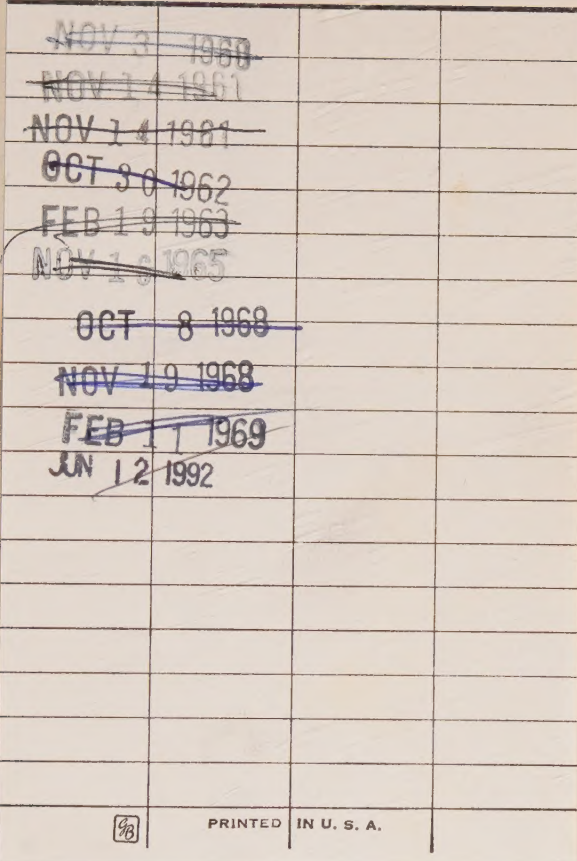 NOV 3 1960
NOV 14 1961
NOV 14 1961
OCT 30 1962
FEB 19 1963
NOV 16 1965
OCT 8 1968
NOV 19 1968
FEB 11 1969
JUN 12 1992
GB PRINTED IN U. S. A.